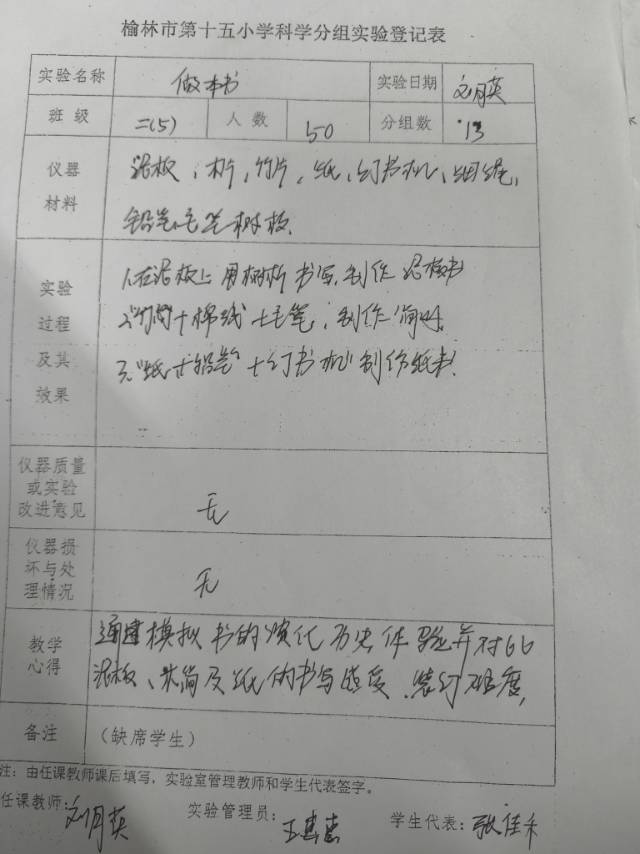 榆林市第十五小学科学分组实验登记表
实验名称 做本书 实验日期 刘月英
班级 二(5) 人数 50 分组数 13
仪器 泥板、木片,竹片,纸,订书机,细绳,
材料 铅笔毛笔树枝.
实验 1.在泥板上用树枝书写,制作泥板书
过程 2.竹简+棉线+毛笔,制作简时.
及其 3.纸+铅笔+订书机制作纸书.
效果
仪器质量
或实验
改进意见 无
仪器损
坏与处
理情况 无
教学 通过模拟书的演化历史体验并对比
心得 泥板、木简及纸的书写感受、装订难度,
备注 (缺席学生)
注:由任课教师课后填写,实验室管理教师和学生代表签字。
任课教师:刘月英 实验管理员: 学生代表:张佳禾